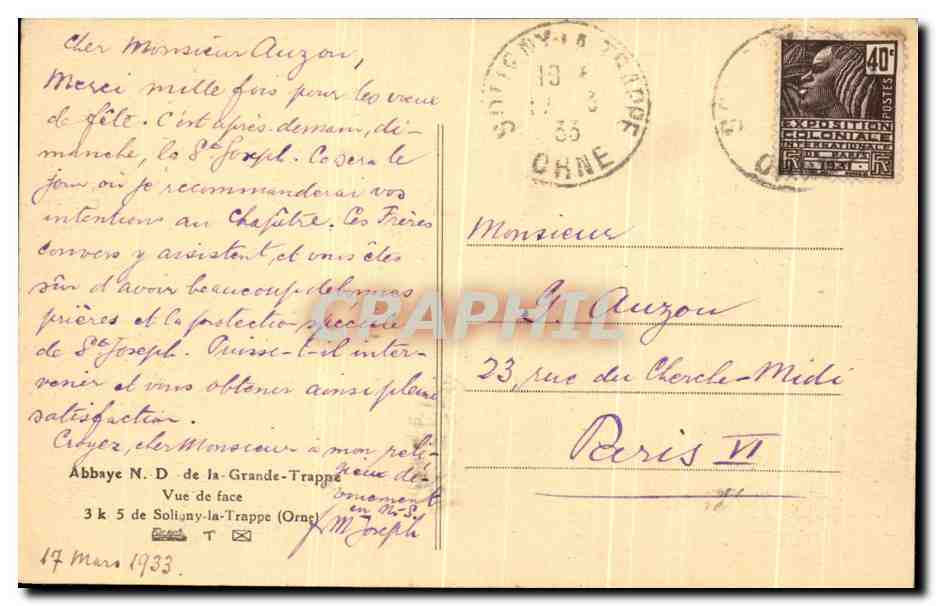 Cher Monsieur Auzou,
Merci mille fois pour les vœux
de fête. C'est après-demain, di-
manche, la St Joseph. Ce sera le
jour où je recommanderai vos
intention au Chapitre. Ces Frères
convers y assistent, et vous êtes
sûr d'avoir beaucoup de bonnes
prières et la protection spéciale
de St Joseph. Puisse-t-il inter-
venir et vous obtenir ainsi pleine
satisfaction.
Croyez, cher Monsieur à mon reli-
gieux dé-
vouement
en N.-S.
f. M. Joseph
Abbaye N. D de la Grande-Trappe
Vue de face
3 k 5 de Soligny-la-Trappe (Orne)
T
17 Mars 1933.
SOLIGNY-LA-TRAPPE
19
17 3
33
ORNE
40c
POSTES
EXPOSITION
COLONIALE
INTERNATIONALE
DE PARIS
1931
Monsieur
G. Auzou
23, rue du Cherche-Midi
Paris VI
CPAPHIL